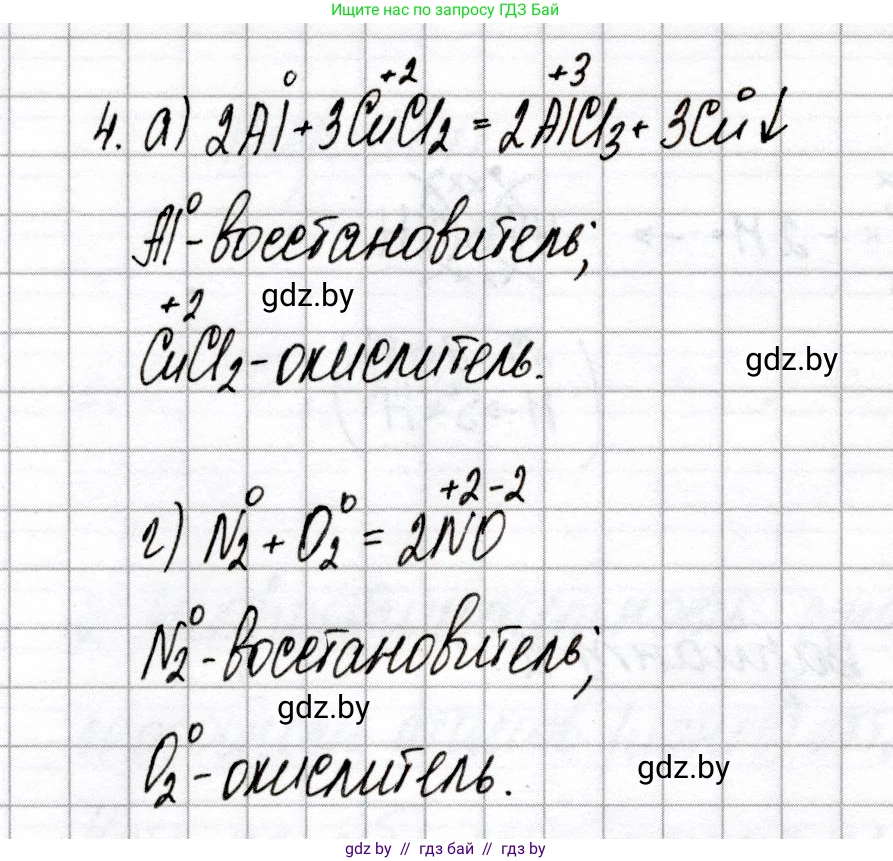 Ищите нас по запросу ГДЗ Бай
4. а) 2Al⁰ + 3Cu⁺²Cl₂ = 2Al⁺³Cl₃ + 3Cu⁰↓
Al⁰ - восстановитель;
gdz.by
Cu⁺²Cl₂ - окислитель.
gdz.by
г) N₂⁰ + O₂⁰ = 2N⁺²O⁻²
N₂⁰ - восстановитель;
gdz.by
O₂⁰ - окислитель.
gdz.by
gdz.by // гдз бай // gdz.by